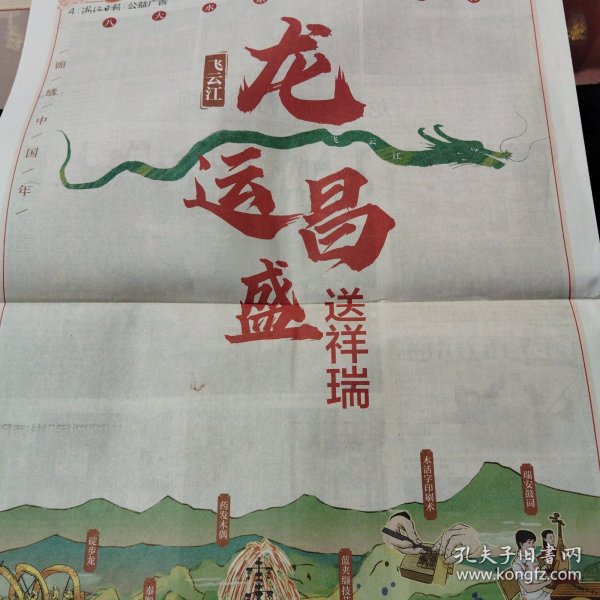 4
公益广告
八 人 水
锦/绣/中/国/年/
飞云江
龙
飞云江
运
昌
盛
送祥瑞
木活字印刷术
瑞安鼓词
药发木偶
碇步龙
蓝夹缬技
孔夫子旧书网
www.kongfz.com